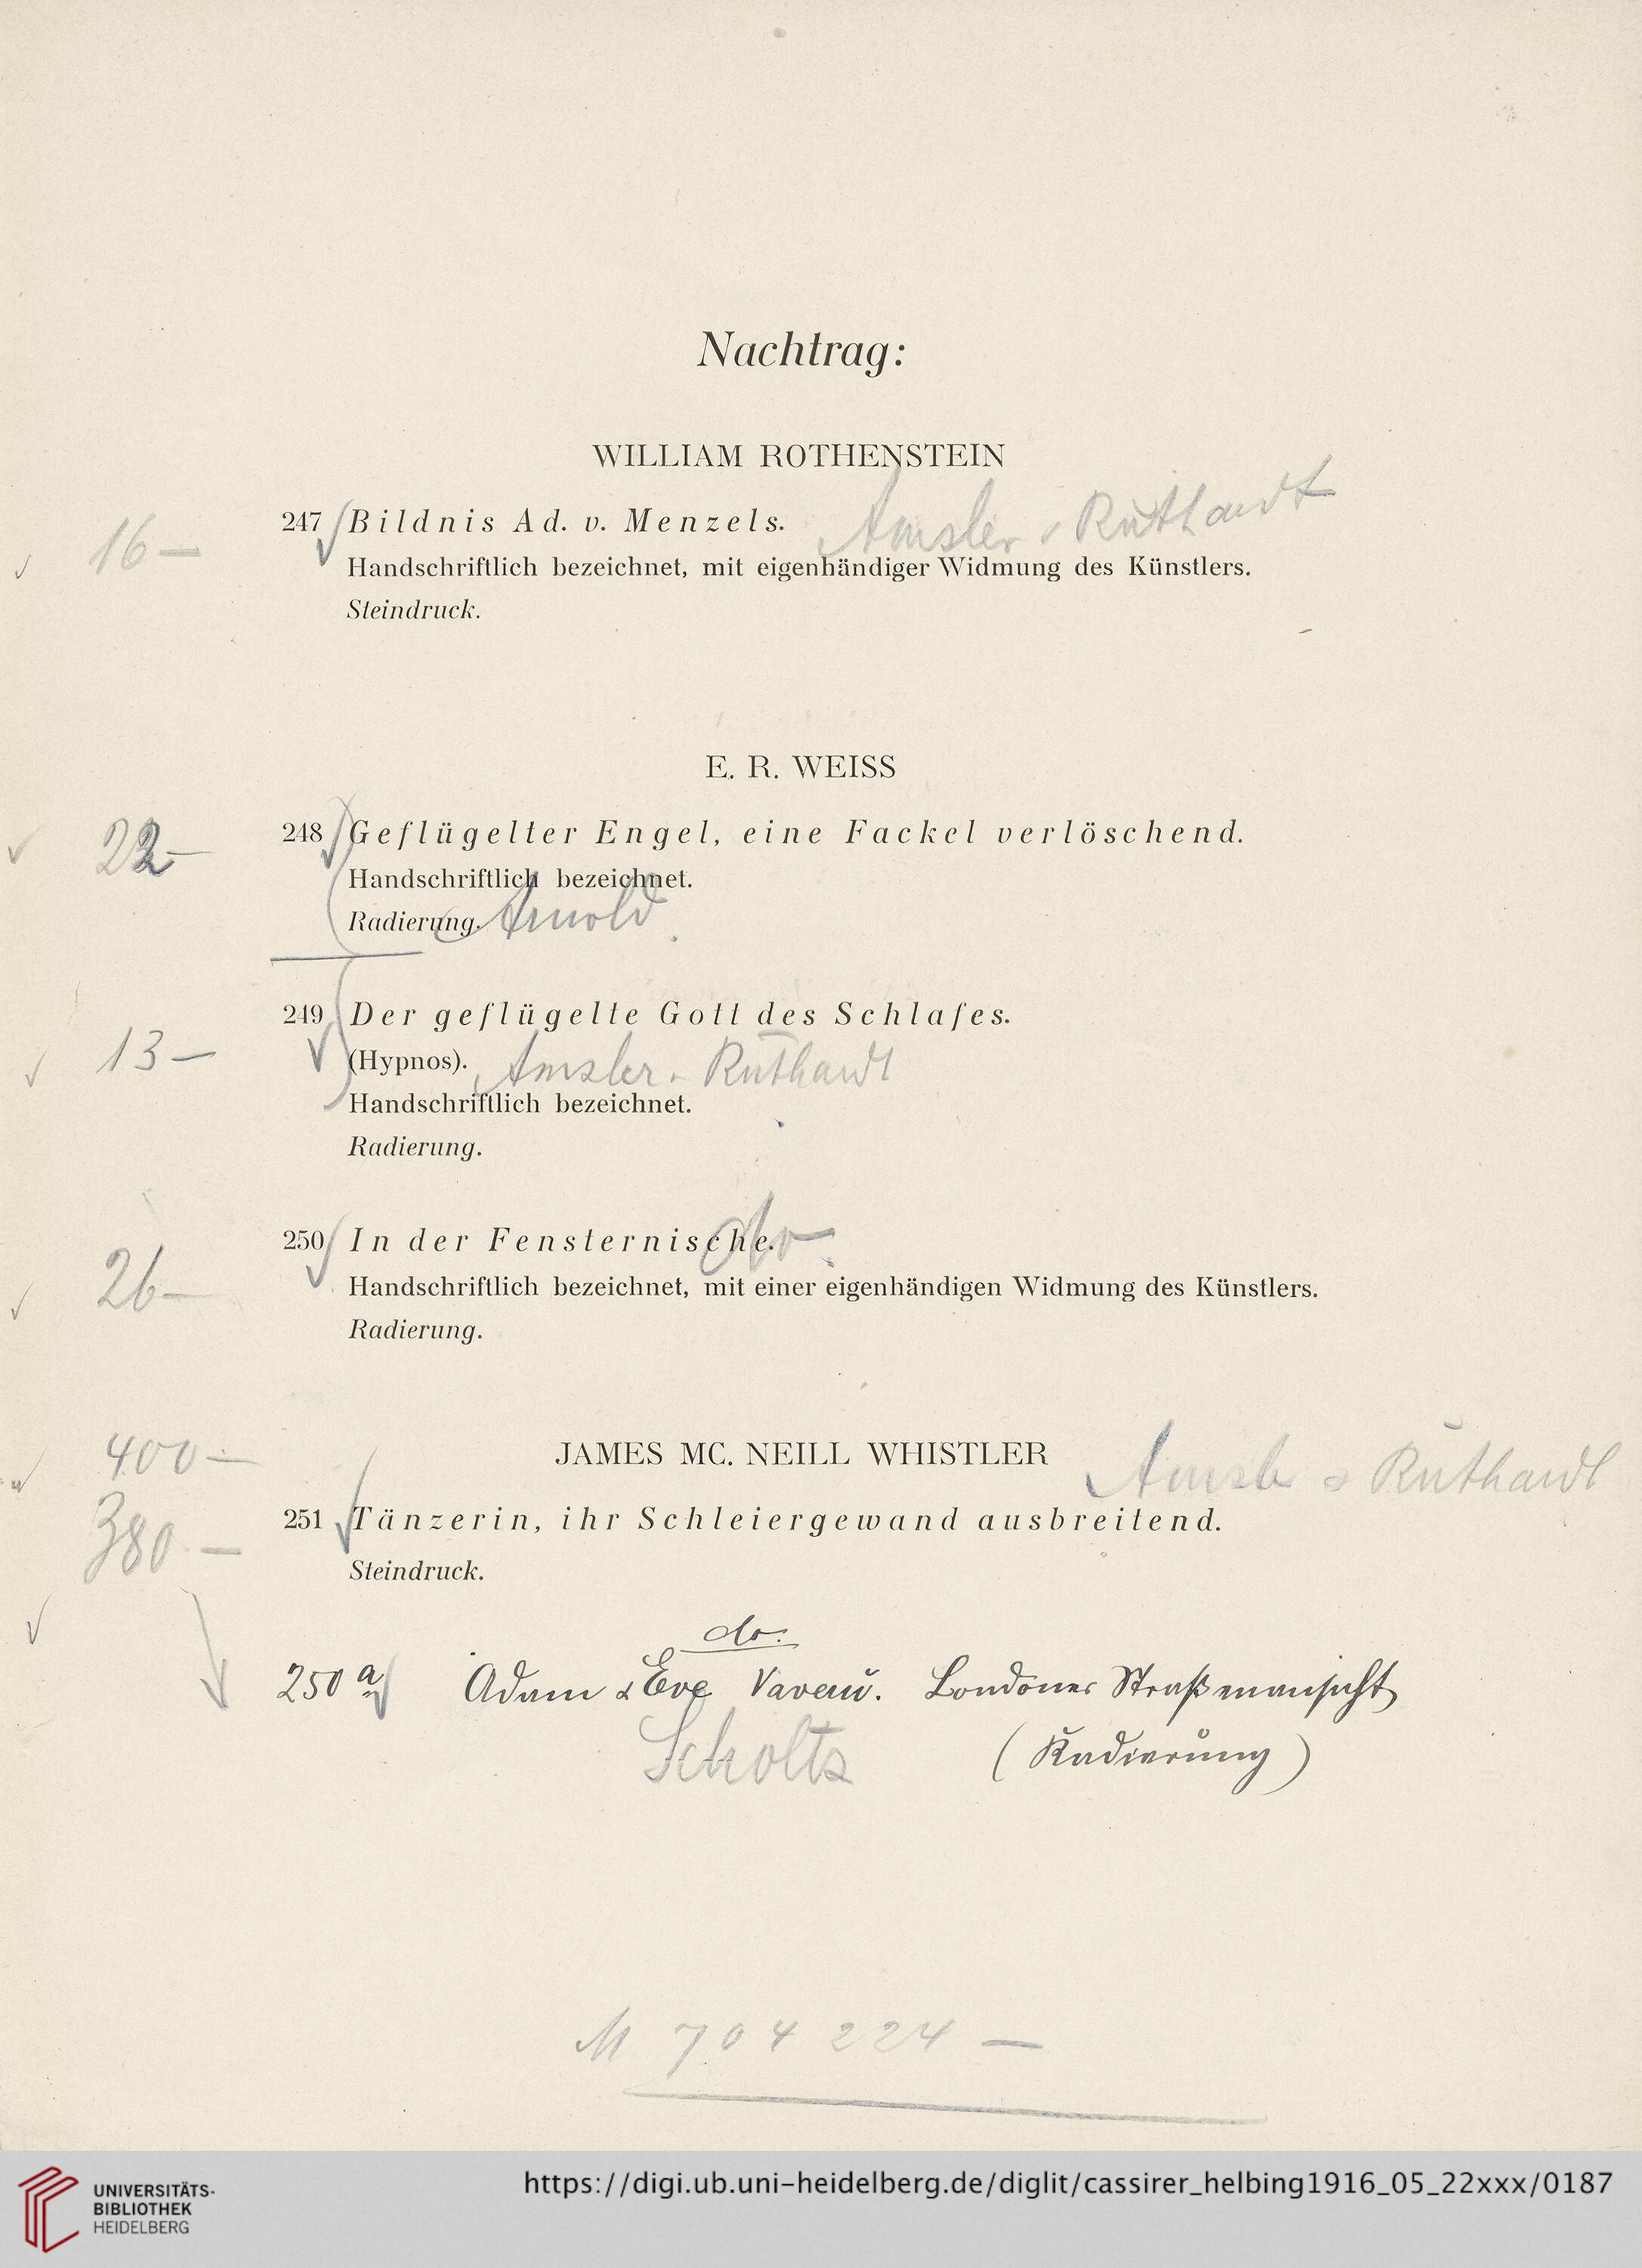 Nachtrag:
WILLIAM ROTHENSTEIN
Amsler & Ruthardt
16 — 247 Bildnis Ad. v. Menzels.
Handschriftlich bezeichnet, mit eigenhändiger Widmung des Künstlers.
Steindruck.
E. R. WEISS
22- 248 Geflügelter Engel, eine Fackel verlöschend.
Handschriftlich bezeichnet.
Radierung. Arnold
249 Der geflügelte Gott des Schlafes.
13 — (Hypnos). Amsler - Ruthardt
Handschriftlich bezeichnet.
Radierung.
250 In der Fensternische. do
26 — Handschriftlich bezeichnet, mit einer eigenhändigen Widmung des Künstlers.
Radierung.
400 — JAMES MC. NEILL WHISTLER Amsler & Ruthardt
380 — 251 Tänzerin, ihr Schleiergewand ausbreitend.
Steindruck.
do.
250 a Adam & Eve Londoner Straßenansicht
Scholtz (Radierung)
M 704 224 —
UNIVERSITÄTS-
BIBLIOTHEK
HEIDELBERG
https://digi.ub.uni-heidelberg.de/diglit/cassirer_helbing1916_05_22xxx/0187